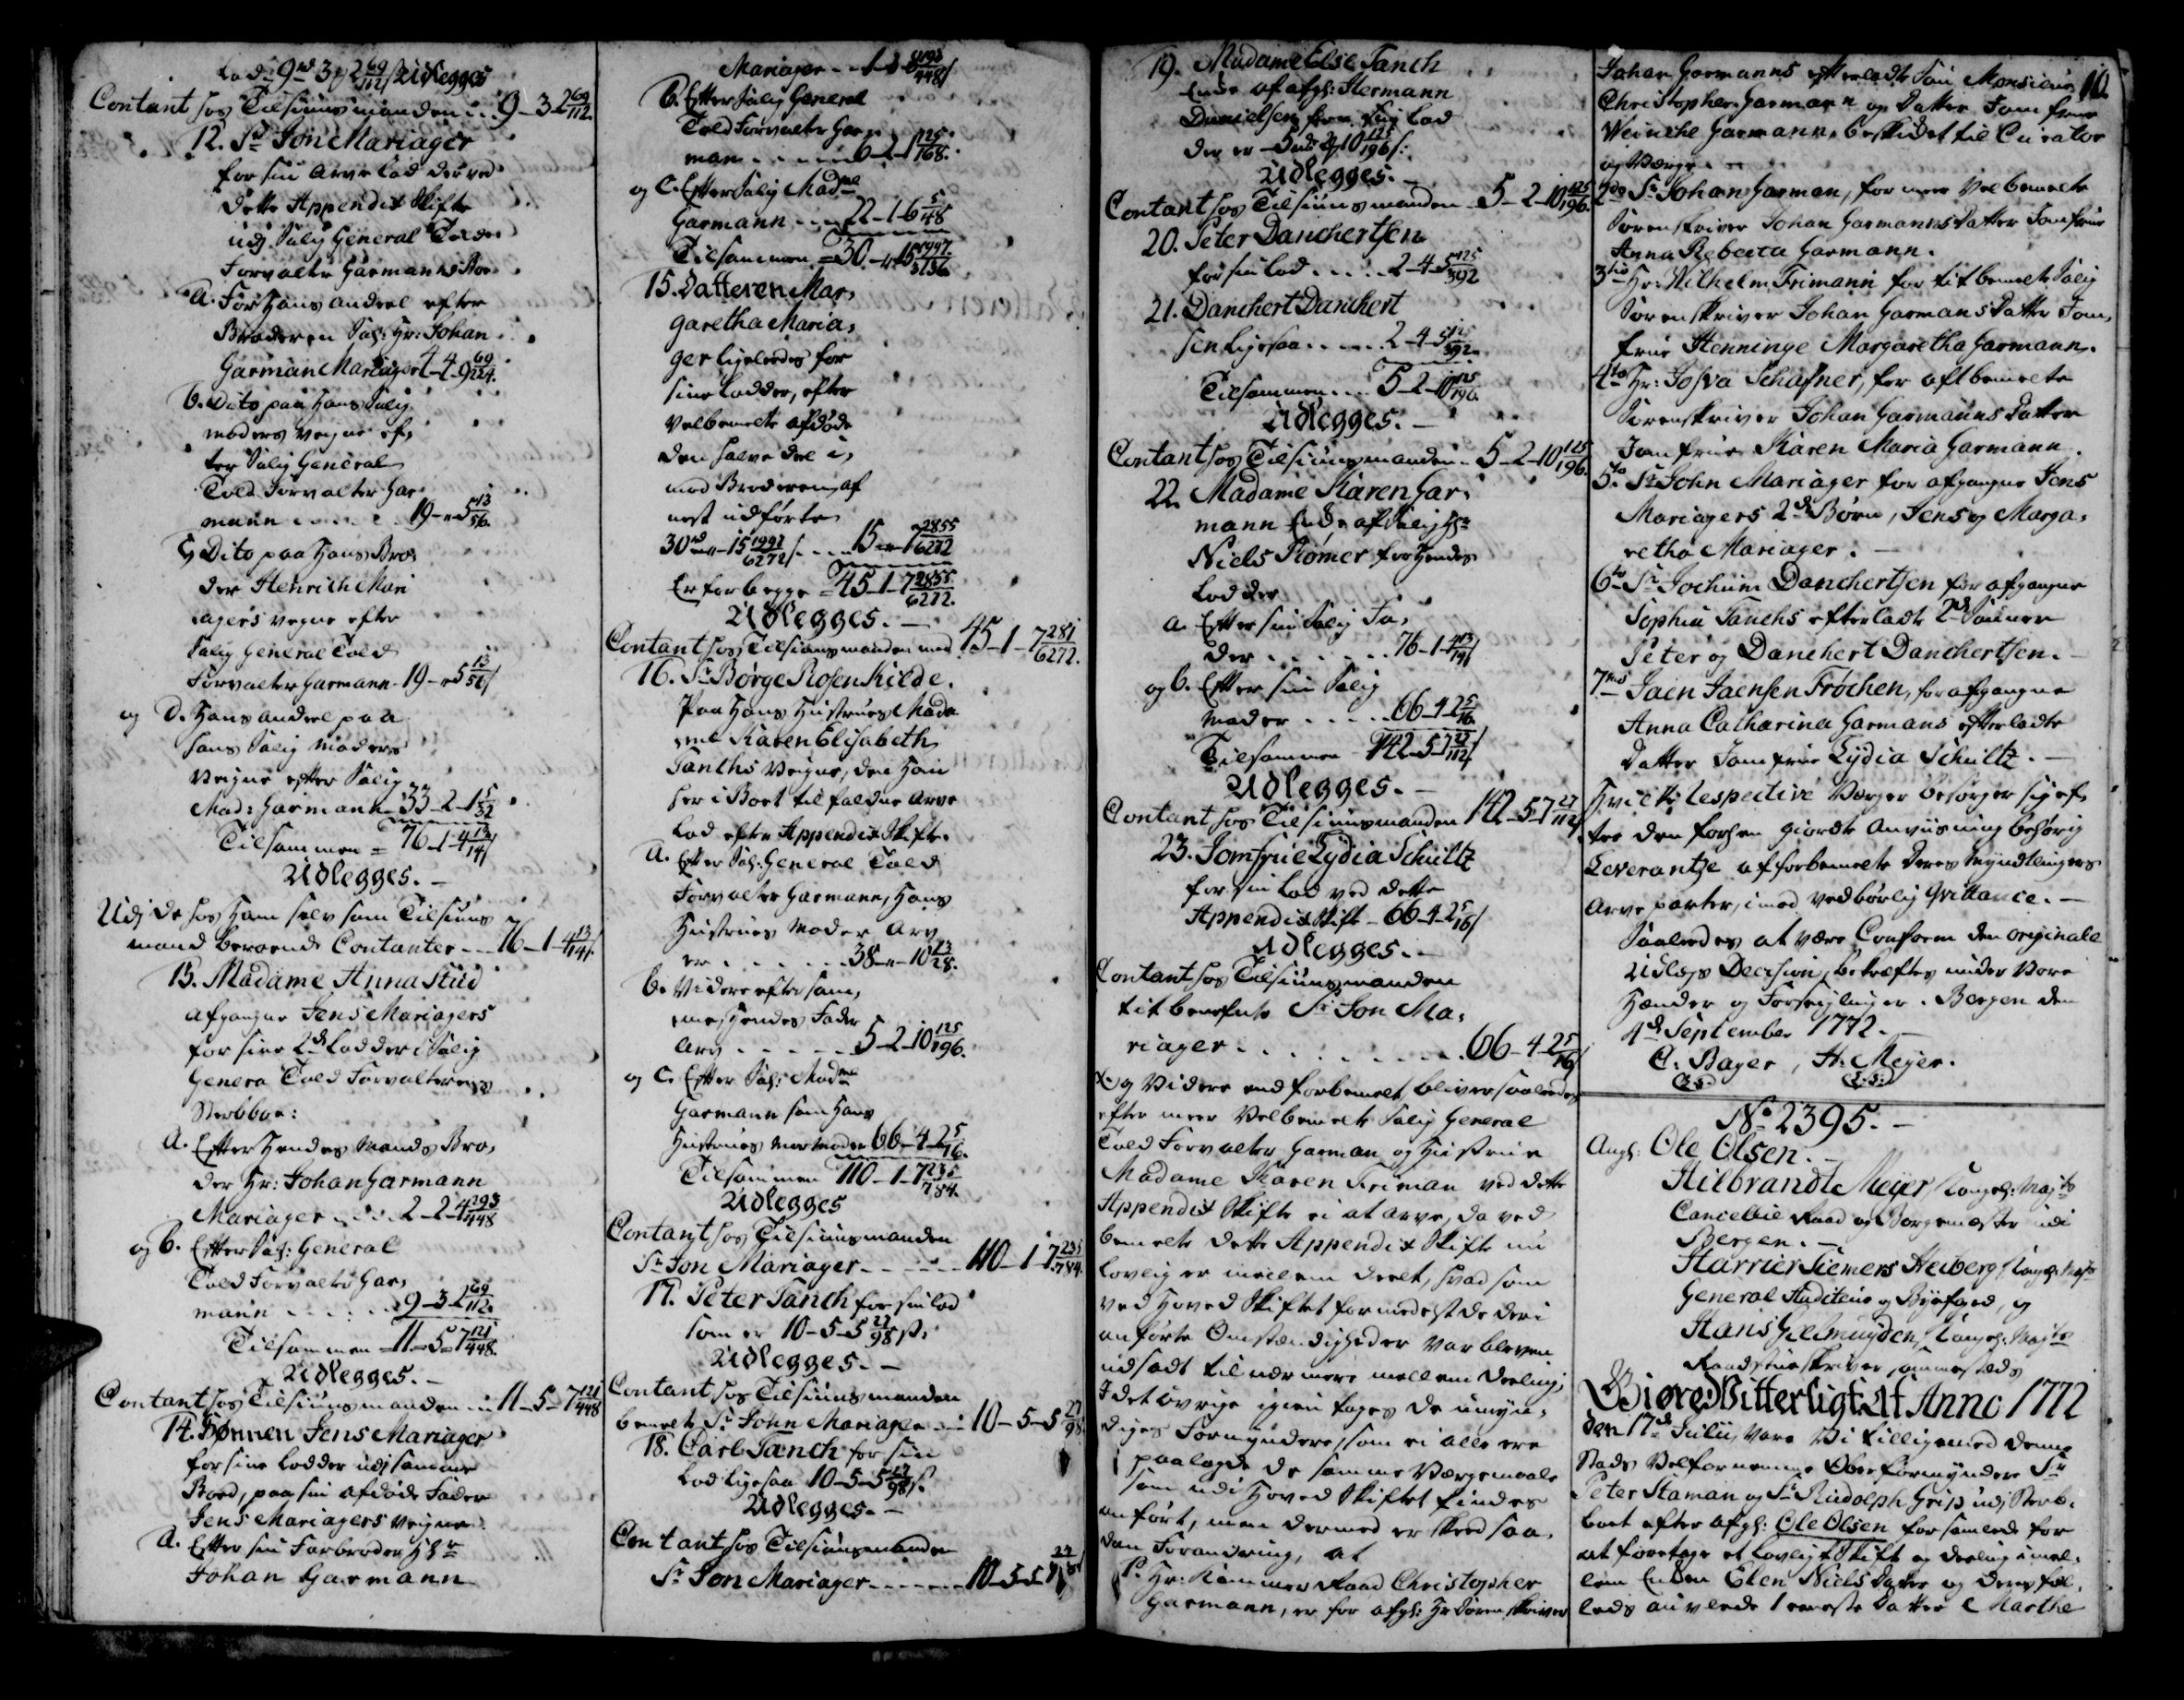 Lod 9 rd 3 2 69/112 ß Udlegges
Contant hos Tilsiuns manden 9-3-2 69/112.
12. Sr Jon Mariager
for sin Arve Lod der ved
dette Appendix Skifte
udj Salig General Told
Forvalter Garmanns Boe
A. For Hans andeel efter
Broderen Sal: Hr: Johan
Garman Mariager 4-4-9 69/224.
b. Dito paa Hans Salig
moders vegne ef,
ter Salig General
Told Forvalter Gar,
mann 19-"-5 13/56.
C, Dito paa Hans Bro,
der Henrich Mari
agers vegne efter
Salig General Told
Forvalter Garmann 19-"-5 13/56
og D. Hans andeel paa
hans Salig moders
vegne efter Salig
Mad: Garmann 33-2-1 5/32
Tilsammen = 76-1-4 13/14
Udlegges.
Udj de hos Ham selv som Tilsiuns
mand beroende Contanter 76-1-4 13/14.
13. Madame Anna Stud
afgangne Jens Mariagers
for sine 2de Lodder i Salig
Genera Told Forvalterens
Sterbboe:
A. Efter Hendes Mands Bro,
der Hr: Johan Garmann
Mariager 2-2-4 293/448
og b. Efter Sal: General
Told Forvalter Gar,
mann 9-3-2 69/112.
Tilsammen = 11-5-7 121/448.
Udlegges.
Contant hos Tilsiuns manden 11-5-7 121/448
14. Sønnen Jens Mariager
for sine Lodder udj samme
Boed, paa sin afdøde Fader
Jens Mariagers vegne
A. Efter sin Farbroder Hr
Johan Garmann
Mariager 1-1 /448
b. Efter Salig General
Told Forvalter Gar,
man 6-2-1 125/168.
og C. Efter Salig Madme
Garmann 22-1-6 5/48
Tilsammen = 30-"-15
15. Datteren Mar,
garetha Maria,
ger ligeledes for
sine Lodder, efter
velbemelte afdøde
den halve deel i,
mod Broderen, af
nest udførte
30 rd-"-15 1997/6272 ß 15-"-7 2855/6272
Er for begge = 45-1-7 2855/6272.
Udlegges.
Contant hos Tilsiuns manden med 45-1-7 281/6272.
16. Sr Børge Rosenkilde.
Paa Hans Hustrues Mada
me Karen Elisabeth
Tanchs vegne, den Han
her i Boet til faldne Arve
Lod efter Appendix Skifte.
A. Efter Sal: General Told
Forvalter Garmann, Hans
Hustrues moder Arv
er 38-"-10 23/28.
b. Videre efter sam,
me, Hendes Fader
Arv 5-2-10 125/196.
og C. Efter Sal: Madme
Garmann som Hans
Hustrues mormoder 66-4-2 5/16.
Tilsammen 110-1-7 235/784.
Udlegges
Contant hos Tilsiuns manden
Sr Jon Mariager 110-1-7 235/784.
17. Peter Tanch for sin lod
som er 10-5-5 27/98 ß.
Udlegges.
Contant hos Tilsiuns manden
bemelte Sr John Mariager 10-5-5 27/98
18. Carl Tanch for sin
Lod ligesaa 10-5-5 27/98 ß.
Udlegges.
Contant hos Tilsiuns manden
Sr Jon Mariager 10-5-5 27/98
19. Madame Else Tanch
Enke af afgl: Hermann
Danielsen for sin Lod
der er 5 rd 2 10 125/196 ß:
Udlegges.
Contant hos Tilsiuns manden 5-2-10 125/196.
20. Peter Danchertsen
for sin Lod 2-4-5 125/392
21. Danchert Danchert
sen ligesaa 2-4-5 125/392.
Tilsammen 5-2-10 125/196.
Udlegges.
Contant hos Tilsiuns manden 5-2-10 125/196.
22. Madame Karen Gar,
mann Enke af Salig Hr
Niels Rømer for Hendes
Lodder
a. Efter sin Salig Fa,
der 76-1-4 13/14
og b. Efter sin Salig
Moder 66-4-2 5/16.
Tilsammen 142-5-7 27/112
Udlegges.
Contant hos Tilsiuns manden 142-5-7 27/112
23. Jomfrue Lydia Schultz
for sin Lod ved dette
Appendix Skifte 66-4-2 5/16
Udlegges.
Contant hos Tilsiuns manden
tit benefnte Sr Jon Ma,
riager 66-4-2 5/16
Og Videre end forbemelt bliver saaledes
efter meer Velbemelte Salig General
Told Forvalter Garman og Hustrue
Madame Karen Friman ved dette
Appendix Skifte ei at arve, da ved
bemelte dette Appendix Skifte nu
lovlig er imellem deelt, hvad som
ved Hoved Skiftet formedelst de deri
anførte Omstændigheder var bleven
udsadt til nærmere mellem deeling,
I det øvrige igien tages de umyn,
diges Formyndere, som ei alle ere
paalagde de samme Vergemaale
som udi Hoved Skiftet findes
anført, men dermed er skeed saa,
dan Forandring, at
1o Hr: Kammer Raad Christopher
Garmann, er for afgl: Hr Sorenskriver
Johan Garmanns efterladte Søn Monsieur 10.
Christopher Garmann og Datter Jomfrue
Weinche Garmann, beskicket til Curator
og Værge.
2do Sr Johan Garman, for meer Velbemelte
Sorenskriver Johan Garmanns Datter Jomfrue
Anna Rebecca Garmann.
3tio Hr: Wilhelm Frimann for titbemelte Salig
Sorenskriver Johan Garmans Datter Jom,
frue Henninge Margaretha Garmann.
4to Hr: Josva Schafner, for oftbemelte
Sorenskriver Johan Garmanns Datter
Jomfrue Karen Maria Garmann.
5to Sr John Mariager for afgangne Jens
Mariagers 2de Børn, Jens og Marga,
retha Mariager.
6to Sr Jochum Danchertsen for afgangne
Sophia Tanchs efterladte 2de Sønner
Peter og Danchert Danchertsen.
7mo Jaen Jaensen Frøchen, for afgangne
Anna Catharina Garmans efterladte
Datter Jomfrue Lydia Schultz.
Hvilke Respective Værger besørger sig ef,
ter den forhen giorde Anviisning behørig
Leverantze af forbemelte deres Myndtlingers
Arve parter, imod vedbørlig Qvittance.
Saaledes at være Conform den originale
Udlægs Decision, bekræftes under Vore
Hænder og Forseiglinger. Bergen den
4de September 1772.
C. Bager, H. Meyer.
L.S. L.S.
No 2395.
Angl: Ole Olsen.
Hilbrandt Meyer, Kongel: Majts
Cancellie Raad og Borgemester udi
Bergen.
Harrier Siemers Heiberg, Kongl. Majts
General Auditeur og Byefoged, og
Hans Gelmuyden, Kongel: Majts
Raadstueskriver sammesteds
Giøre Vitterligt At Anno 1772
den 17de Julii, vare Vi tilligemed denne
Stads Velfornemme Oberformyndere Sr
Peter Staman og Sr Rudolph Grip udj Sterb,
boet efter afgl: Ole Olsen forsamlede for
at foretage et lovligt Skifte og deeling imel,
lem Enken Elen Niels Datter og deres fæl,
leds avlede 1 eneste Datter Marthe